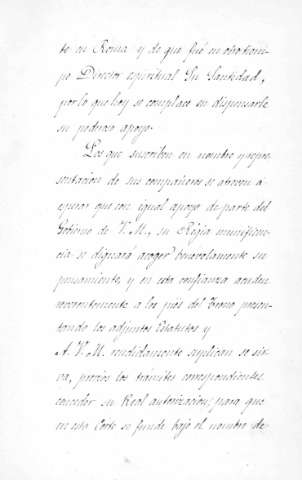 to en Roma y de que fué en otro tiem-
po Director espiritual Su Santidad,
por lo que hoy se complace en dispensarle
su poderoso apoyo.
Los que suscriben en nombre y repre-
sentacion de sus compañeros se atreven á
esperar que con igual apoyo de parte del
Gobierno de V. M., su Régia munificen-
cia se dignará acoger benevolamente su
pensamiento, y en esta confianza acuden
reverentemente a los piés del Trono presen-
tando los adjuntos Estatutos y
A. V. M. rendidamente suplican se sir-
va, previos los trámites correspondientes,
conceder su Real autorizacion, para que
en esta Corte se funde bajo el nombre de-